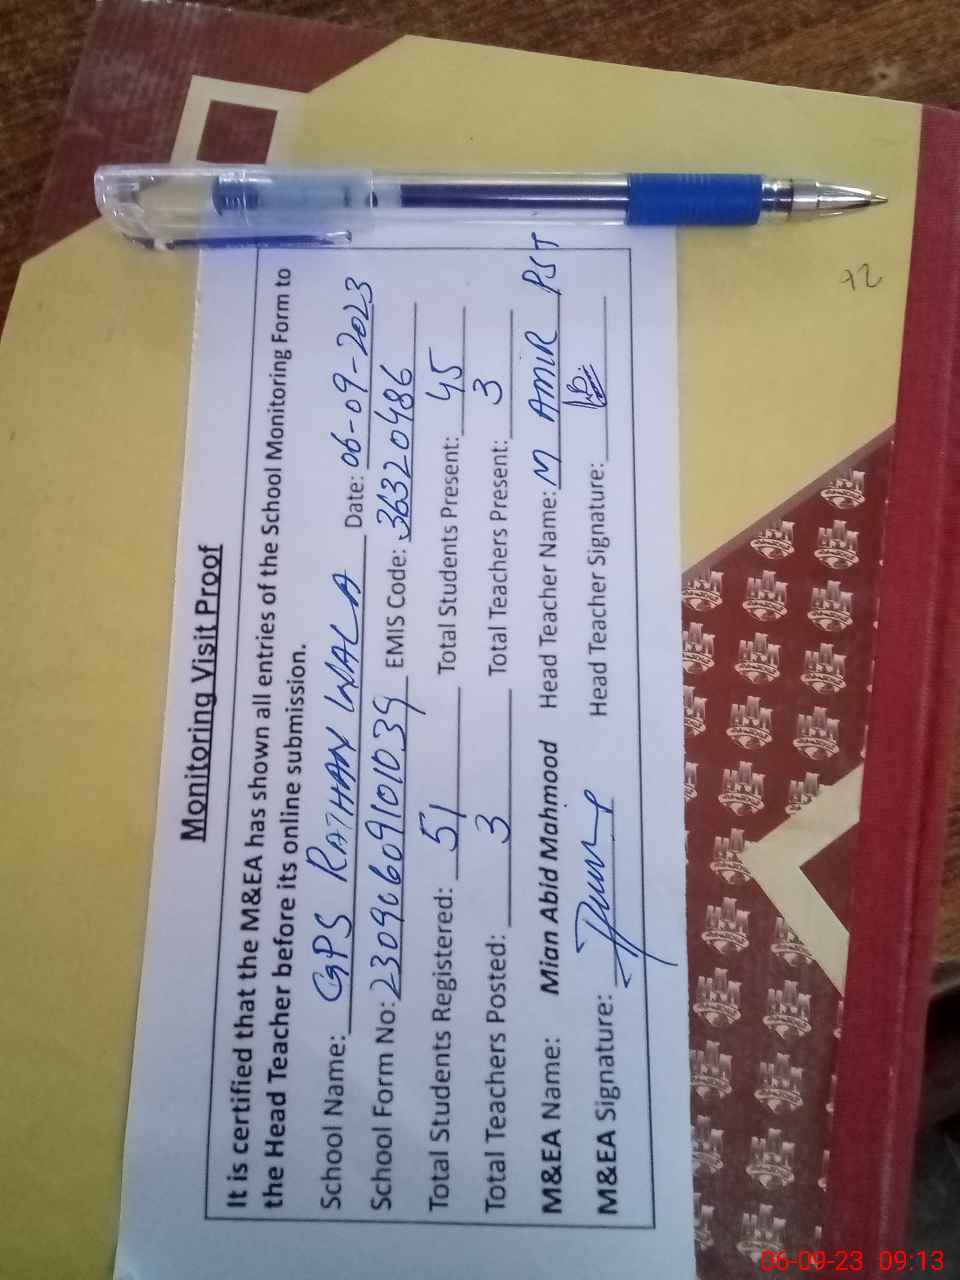 Monitoring Visit Proof
It is certified that the M&EA has shown all entries of the School Monitoring Form to
the Head Teacher before its online submission.
School Name: GPS RATHAN WALA Date: 06-09-2023
School Form No: 23090609101039 EMIS Code: 36320486
Total Students Registered: 51 Total Students Present: 45
Total Teachers Posted: 3 Total Teachers Present: 3
M&EA Name: Mian Abid Mahmood Head Teacher Name: M AMIR PST
M&EA Signature: Head Teacher Signature:
92
06-09-23 09:13